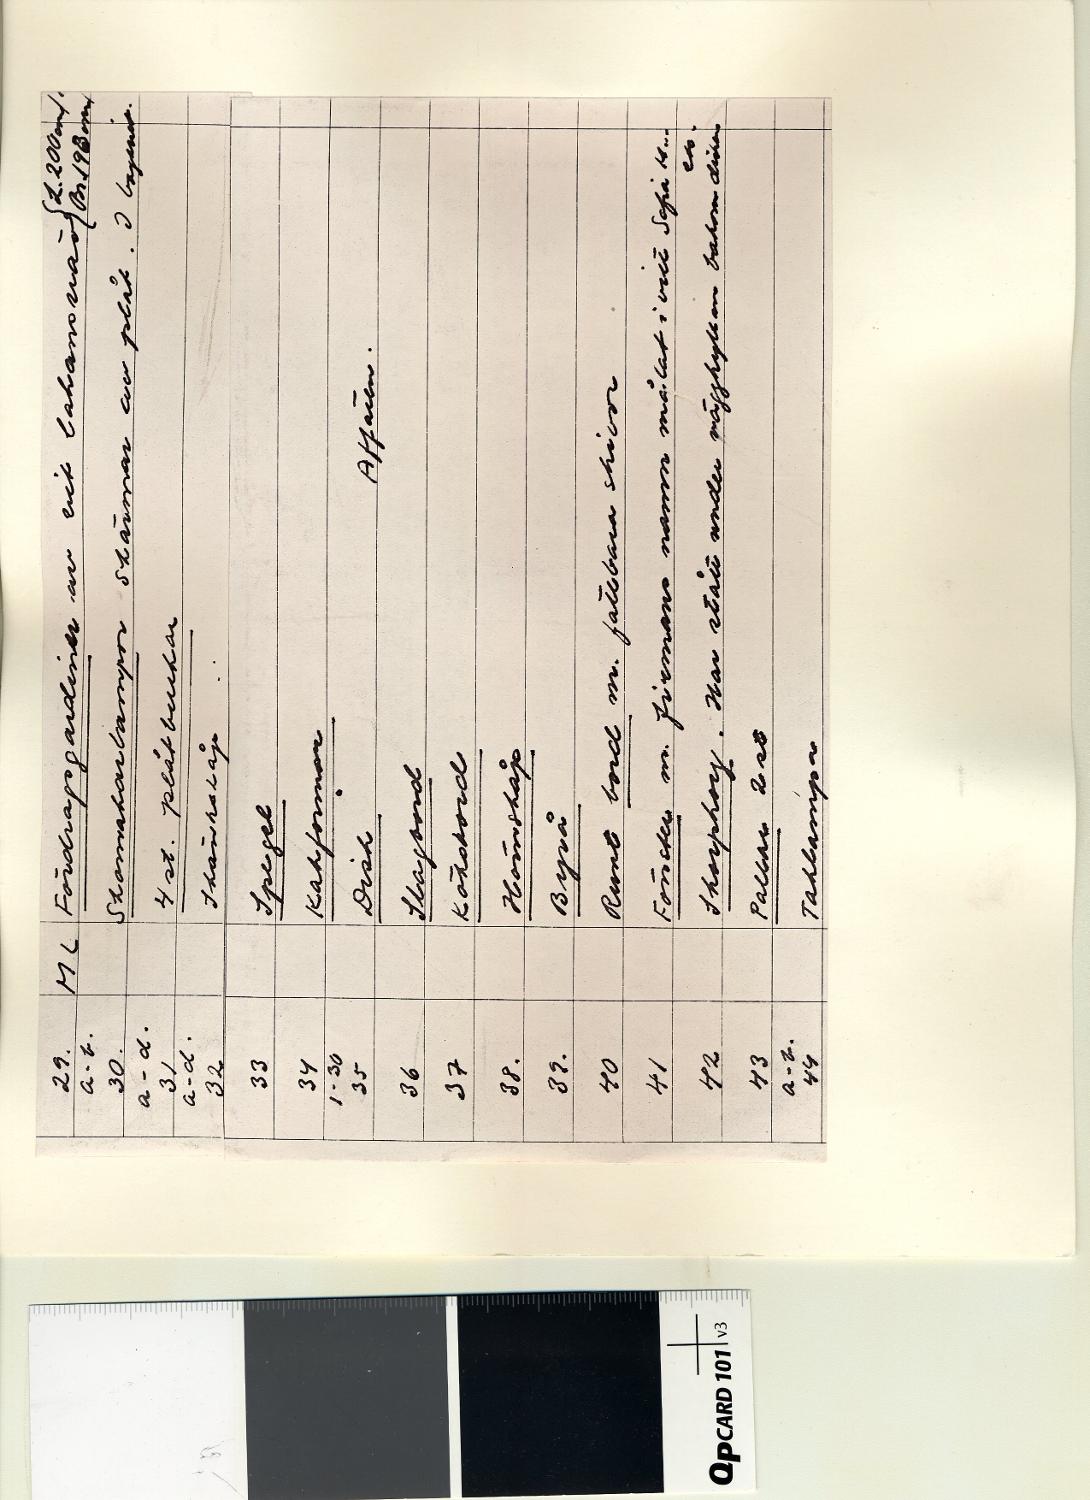 29. ML Fördragsgardiner av vit lakansväv {L. 200 cm
a-b. Br. 198 cm
30. Skomakarlampor skärmar av plåt. I bageriet.
a-d.
31 4 st. plåtburkar
a-d.
32 Skänkskåp
33 Spegel
34 Kakformar
1-30
35 Disk Affären.
36 Slagbord
37 Köksbord
38. Hörnskåp
39. Byrå
40 Runt bord m. fällbara skivor
41 Fönster m. firmans namn målat i vitt Sofia
42 Skorphorg. Har stått under vägghyllan bakom disken
43 Pallar 2 st
a-b.
44 Taklampa
QPCARD 101 v3